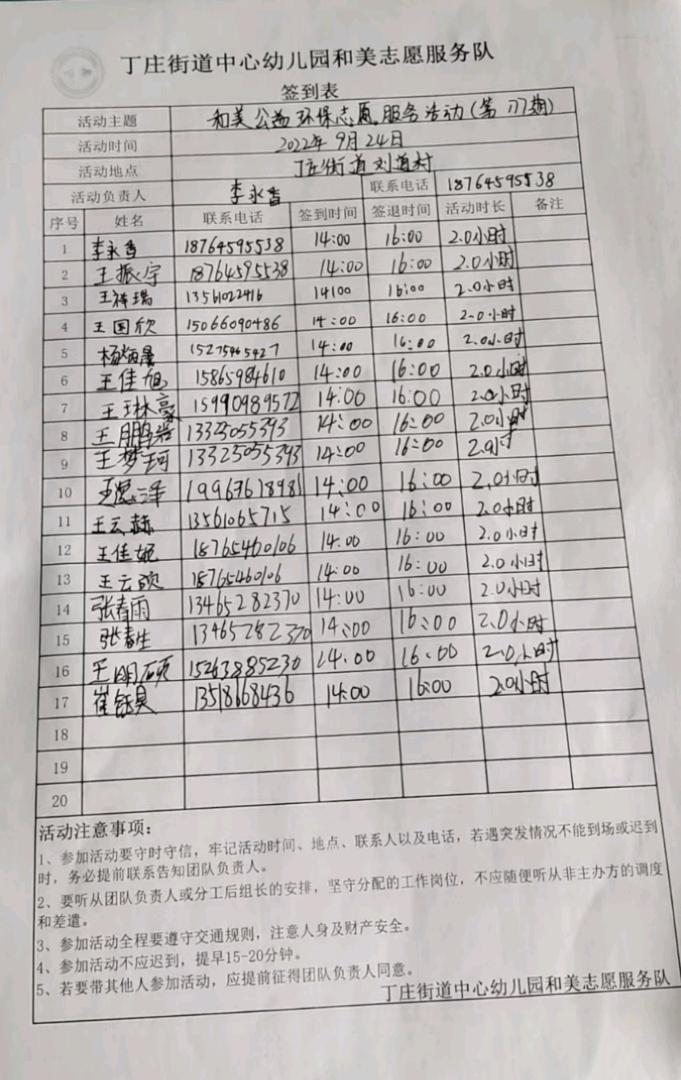 丁庄街道中心幼儿园和美志愿服务队
签到表
活动主题 和美公益环保志愿服务活动(第177期)
活动时间 2022年9月24日
活动地点 丁庄街道刘道村
活动负责人 李永香 联系电话 18764595538
序号 姓名 联系电话 签到时间 签退时间 活动时长 备注
1 李永香 18764595538 14:00 16:00 2.0小时
2 王振宇 18764595538 14:00 16:00 2.0小时
3 王祥瑞 13561022416 14:00 16:00 2.0小时
4 王国欣 15066090486 14:00 16:00 2.0小时
5 杨炳晨 15275465427 14:00 16:00 2.0小时
6 王佳旭 15865984610 14:00 16:00 2.0小时
7 王琳豪 15990989572 14:00 16:00 2.0小时
8 王鹏岩 13325055393 14:00 16:00 2.0小时
9 王梦珂 13325055393 14:00 16:00 2.0小时
10 14:00 16:00 2.0小时
11 王云赫 13561065715 14:00 16:00 2.0小时
12 王佳妮 18765460106 14:00 16:00 2.0小时
13 王云硕 18765460106 14:00 16:00 2.0小时
14 张春雨 13465282370 14:00 16:00 2.0小时
15 张春生 13465282370 14:00 16:00 2.0小时
16 王明硕 15263885230 14:00 16:00 2.0小时
17 崔钰昊 13518668436 14:00 16:00 2.0小时
18
19
20
活动注意事项:
1、参加活动要守时守信，牢记活动时间、地点、联系人以及电话，若遇突发情况不能到场或迟到
时，务必提前联系告知团队负责人。
2、要听从团队负责人或分工后组长的安排，坚守分配的工作岗位，不应随便听从非主办方的调度
和差遣。
3、参加活动全程要遵守交通规则，注意人身及财产安全。
4、参加活动不应迟到，提早15-20分钟。
5、若要带其他人参加活动，应提前征得团队负责人同意。
丁庄街道中心幼儿园和美志愿服务队